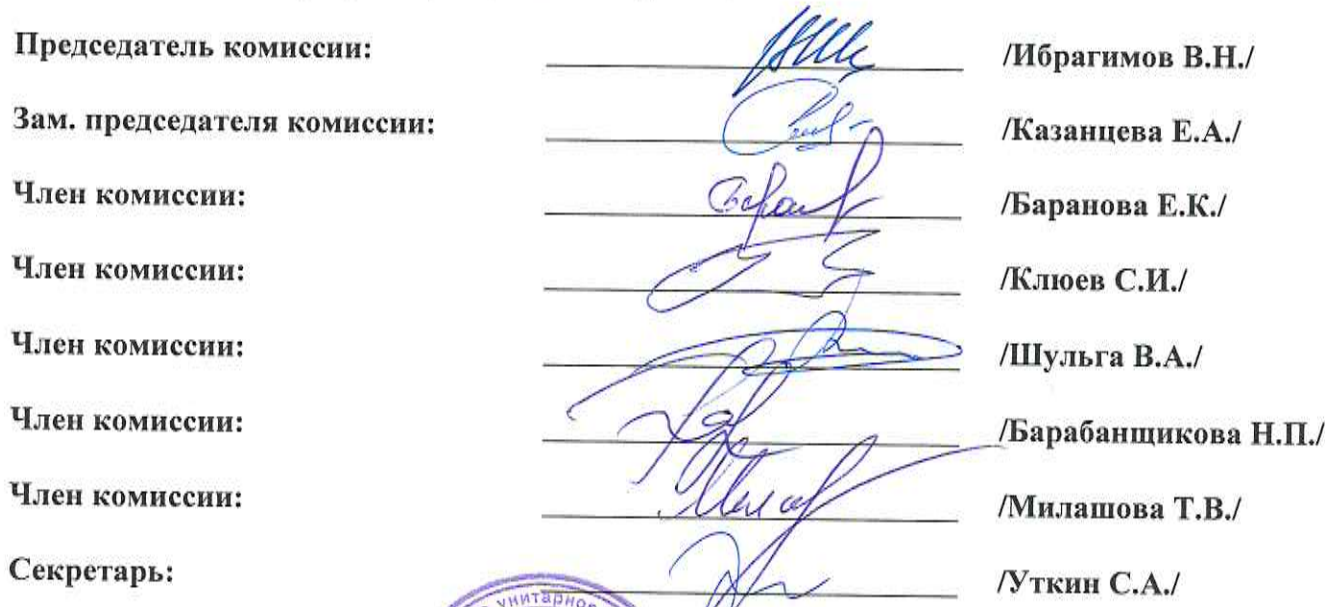 Председатель комиссии: /Ибрагимов В.Н./
Зам. председателя комиссии: /Казанцева Е.А./
Член комиссии: /Баранова Е.К./
Член комиссии: /Клюев С.И./
Член комиссии: /Шульга В.А./
Член комиссии: /Барабанщикова Н.П./
Член комиссии: /Милашова Т.В./
Секретарь: /Уткин С.А./
унитарное